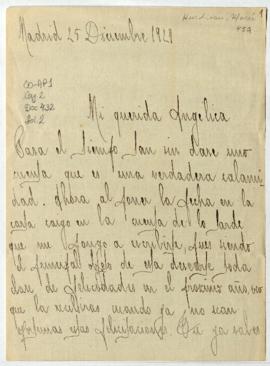 Madrid 25 Diciembre 1921
1
459
CO-AP1
Caj. 2
Doc 432
fol. 2
Mi querida Angelica
Pasa el tiempo tan sin darse uno
cuenta que es una verdadera calami
dad. Ahora al poner la fecha en la
carta caigo en la cuenta de lo tarde
que me pongo a escribirte, pues siendo
el principal objeto de esta desearte toda
clase de felicidades en el proximo año, veo
que la recibiras cuando ya no sean
oportunas estas felicitaciones. Que ya sabes